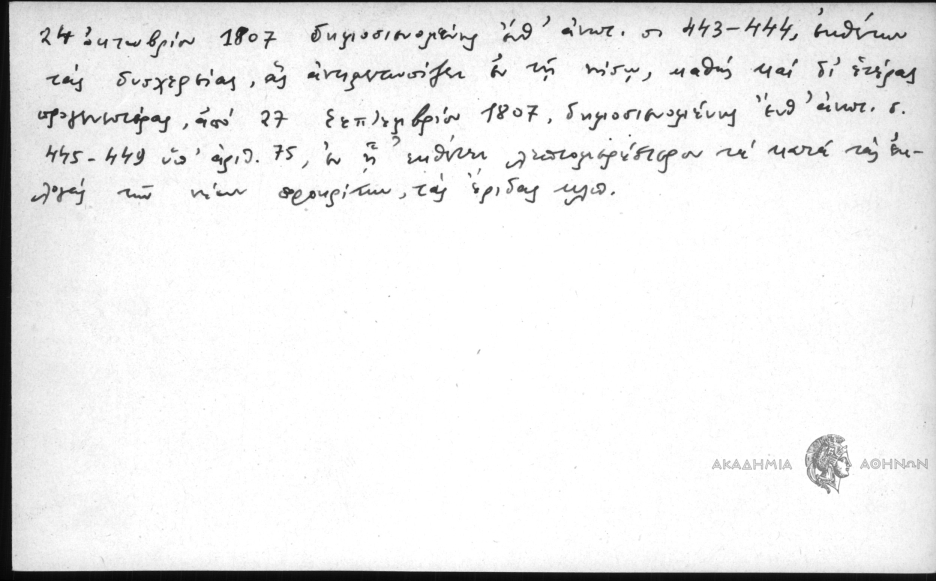 24 ὀκτωβρίου 1807 δημοσιευομένης ἔνθ' ἀνωτ. σ. 443-444, ἐκθέτων
τὰς δυσχερείας, ἃς ἀντιμετωπίζει ἐν τῇ νήσῳ, καθὼς καὶ δι' ἑτέρας
προγενεστέρας, ἀπό 27 Σεπτεμβρίου 1807, δημοσιευομένης ἔνθ' ἀνωτ. σ.
445-449 ὑπ' ἀριθ. 75, ἐν ᾗ ἐκθέτει λεπτομερέστερον τά κατά τάς ἐκ-
λογάς τῶν νέων προκρίτων, τάς ἔριδας κλπ.
ΑΚΑΔΗΜΙΑ ΑΘΗΝΩΝ